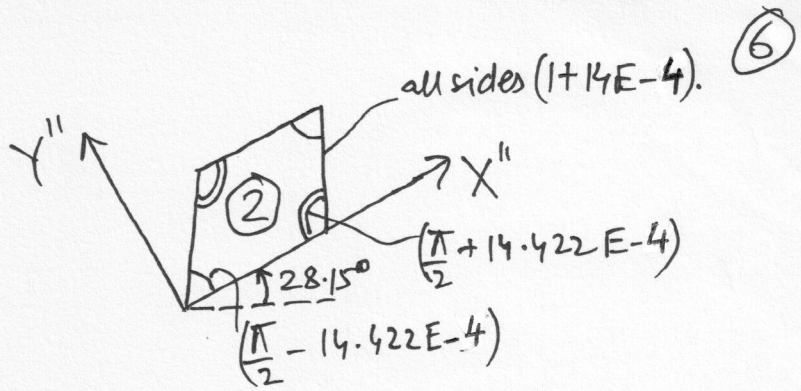 6
all sides (1+14E-4).
Y"
X"
2
(π/2 + 14.422E-4)
28.15°
(π/2 - 14.422E-4)